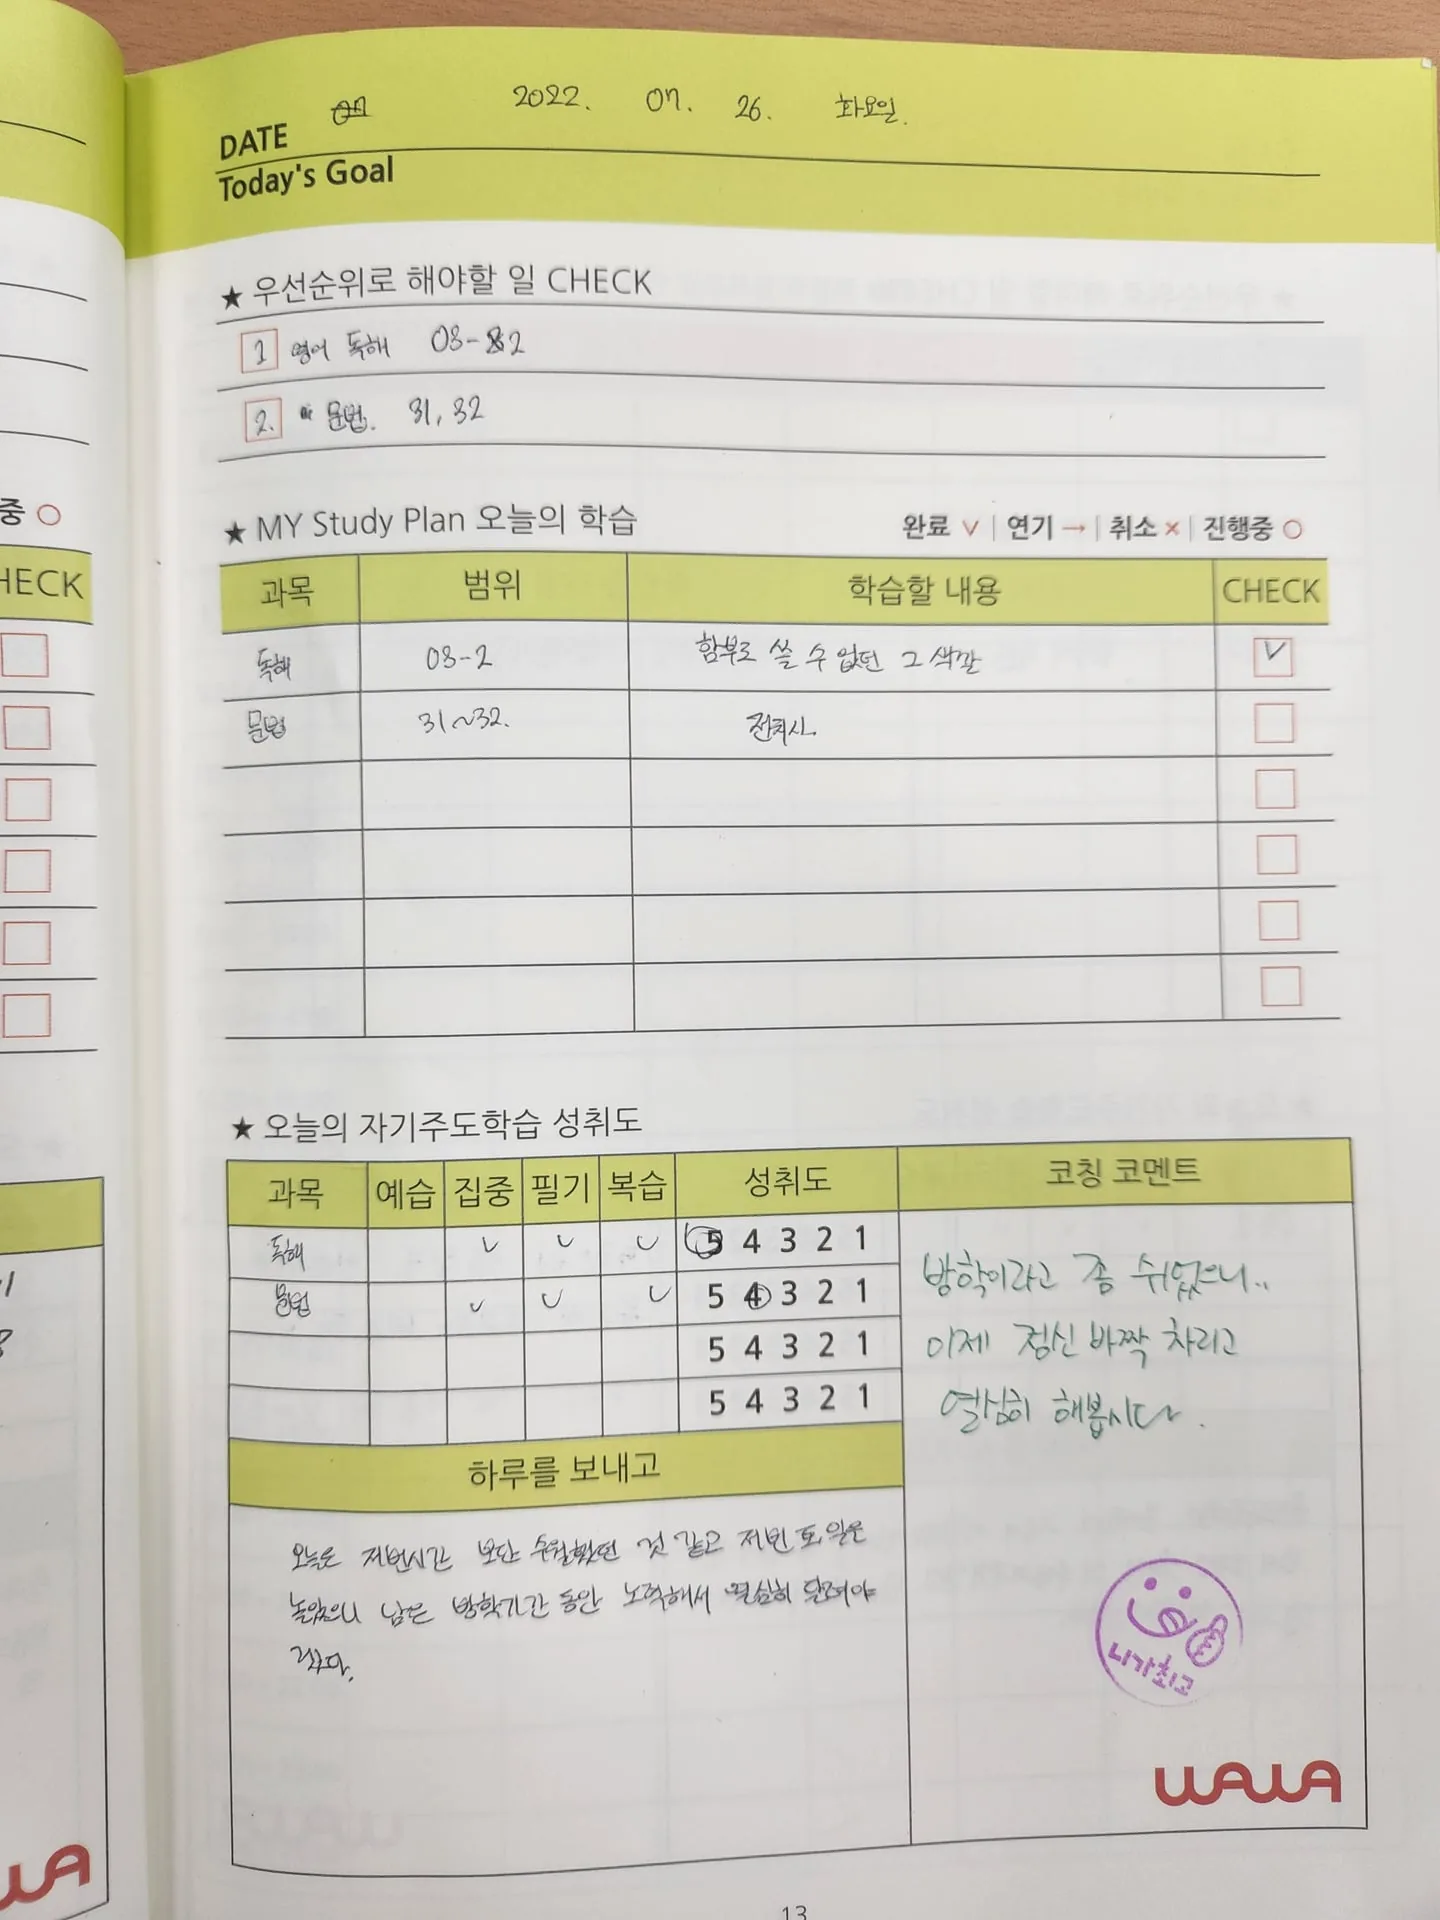 2022. 07. 26. 화요일.
DATE
Today's Goal
★ 우선순위로 해야할 일 CHECK
1 영어 독해 03-2
2. " 문법. 31, 32
★ MY Study Plan 오늘의 학습 완료 ∨ | 연기 → | 취소 × | 진행중 ○
과목 범위 학습할 내용 CHECK
독해 03-2 함부로 쓸 수 없던 그 색깔 ✓
문법 31~32. 전치사.
★ 오늘의 자기주도학습 성취도
과목 예습 집중 필기 복습 성취도 코칭 코멘트
독해 ✓ ✓ ✓ 5 4 3 2 1
문법 ✓ ✓ ✓ 5 4 3 2 1
5 4 3 2 1
5 4 3 2 1
방학이라고 좀 쉬었으니..
이제 정신 바짝 차리고
열심히 해봅시다.
하루를 보내고
오늘은 저번시간 보단 수월했던 것 같고 저번 토, 일은
놀았으니 남은 방학기간 동안 노력해서 열심히 달려야
겠다.
니가최고
WAWA
13
중 ○
HECK